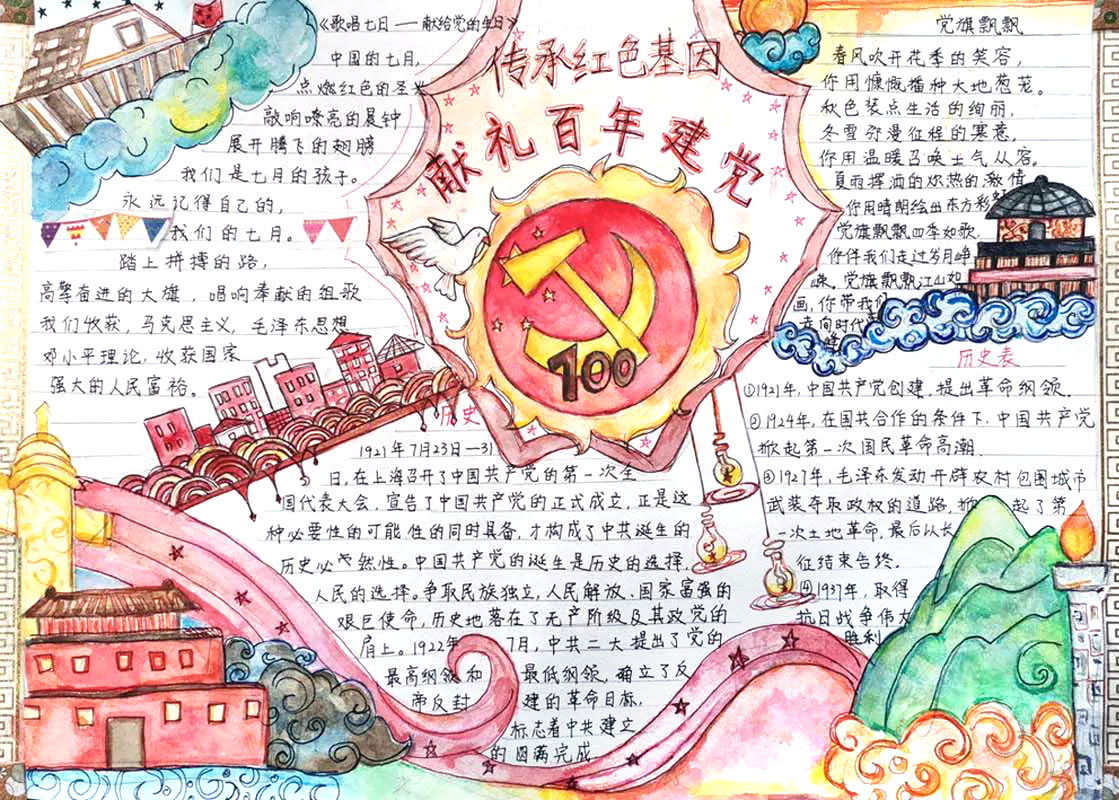 《歌唱七日——献给党的生日》
中国的七月,
点燃红色的圣火
敲响嘹亮的晨钟
展开腾飞的翅膀
我们是七月的孩子。
永远记得自己的,
我们的七月。
踏上拼搏的路,
高擎奋进的大旗,唱响奉献的组歌
我们收获,马克思主义,毛泽东思想
邓小平理论,收获国家
强大的人民富裕。
传承红色基因
献礼百年建党
100
党旗飘飘
春风吹开花季的笑容,
你用慷慨播种大地葱茏。
秋色装点生活的绚丽,
冬雪弥漫征程的寒意,
你用温暖召唤士气从容。
夏雨挥洒的炽热的激情
你用晴朗绘出东方彩
党旗飘飘四季如歌
你伴我们走过岁月峥
嵘。党旗飘飘江山如
画,你带我们
走向时代
峰
历史
1921年7月23日—31
日,在上海召开了中国共产党的第一次全
国代表大会,宣告了中国共产党的正式成立,正是这
种必要性的可能性的同时具备,才构成了中共诞生的
历史必然性。中国共产党的诞生是历史的选择,
人民的选择。争取民族独立,人民解放、国家富强的
艰巨使命,历史地落在了无产阶级及其政党的
肩上。1922年 7月,中共二大提出了党的
最高纲领和 最低纲领,确立了反
帝反封 建的革命目标,
标志着中共建立
的圆满完成
历史表
①1921年,中国共产党创建,提出革命纲领.
②1924年,在国共合作的条件下,中国共产党
掀起第一次国民革命高潮.
③1927年,毛泽东发动开辟农村包围城市
武装夺取政权的道路,掀起了第
一次土地革命,最后以长
征结束告终.
④1937年,取得
抗日战争伟大
胜利